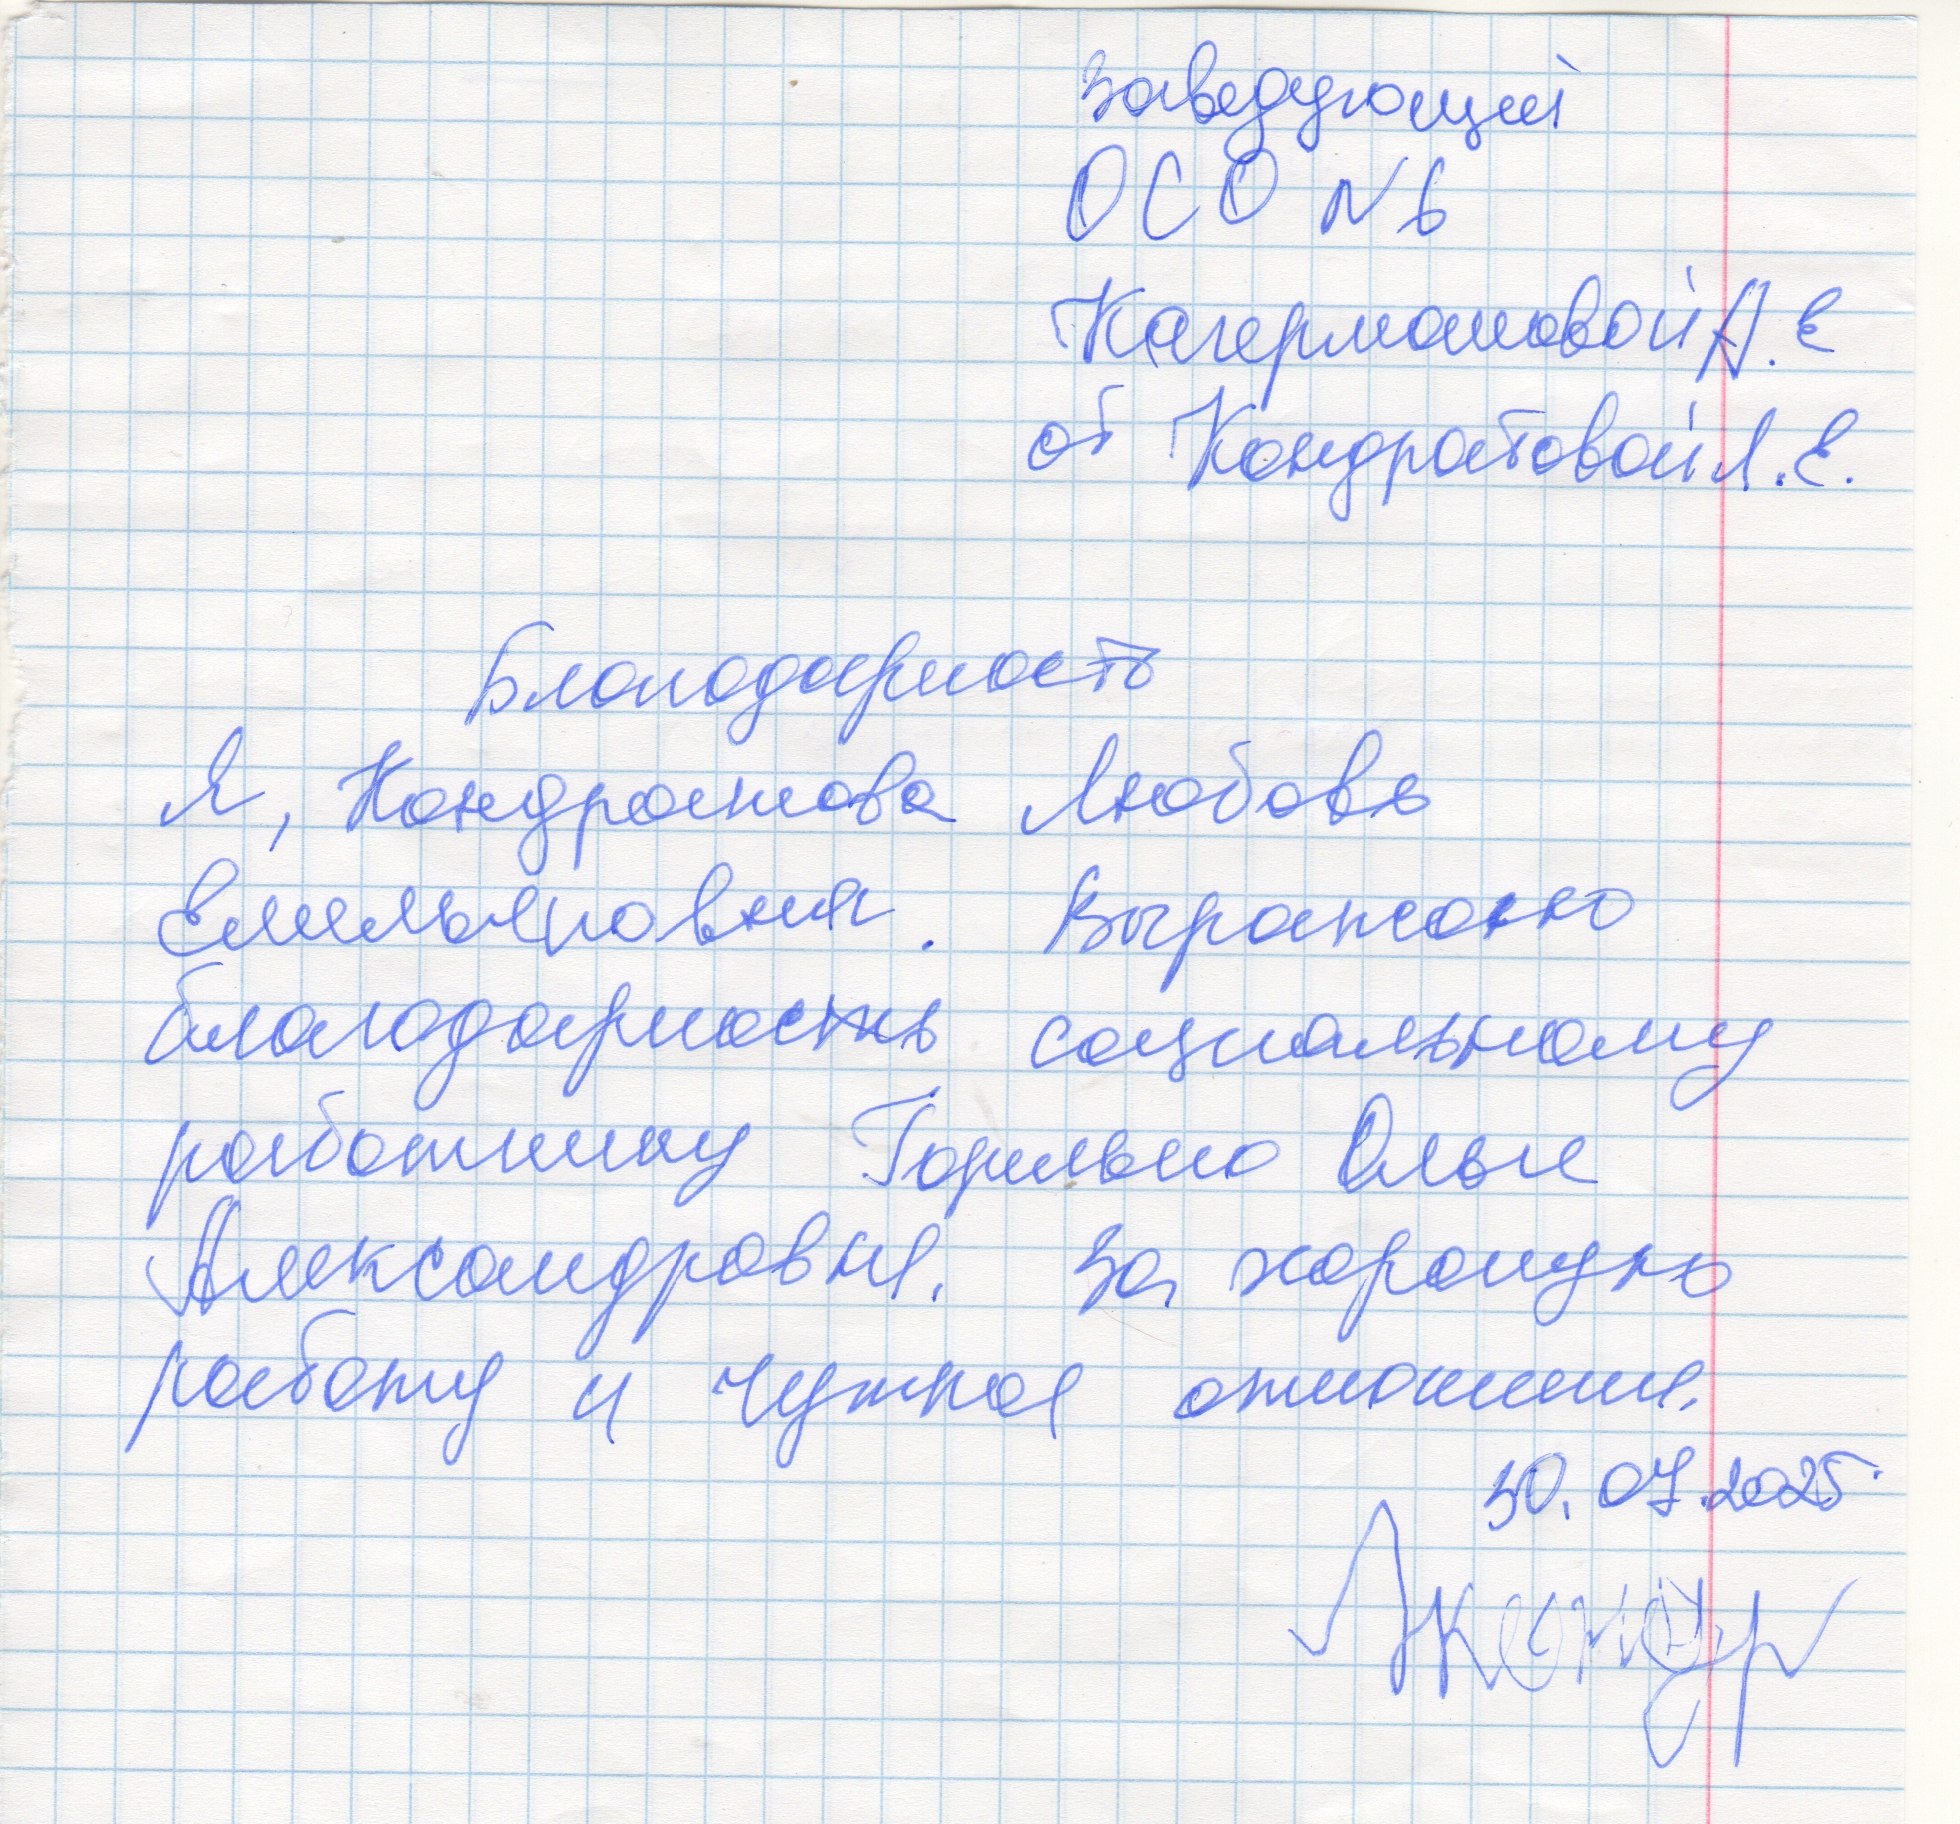 заведующий
ОСО N 6
Кагермановой А. Е
от Кондратовой Л. Е.
Благодарность
Я, Кондратова Любовь
Емельяновна. Выражаю
благодарность социальному
работнику Ольги
Александровне. За хорошую
работу и чуткое отношение.
30.07.2025